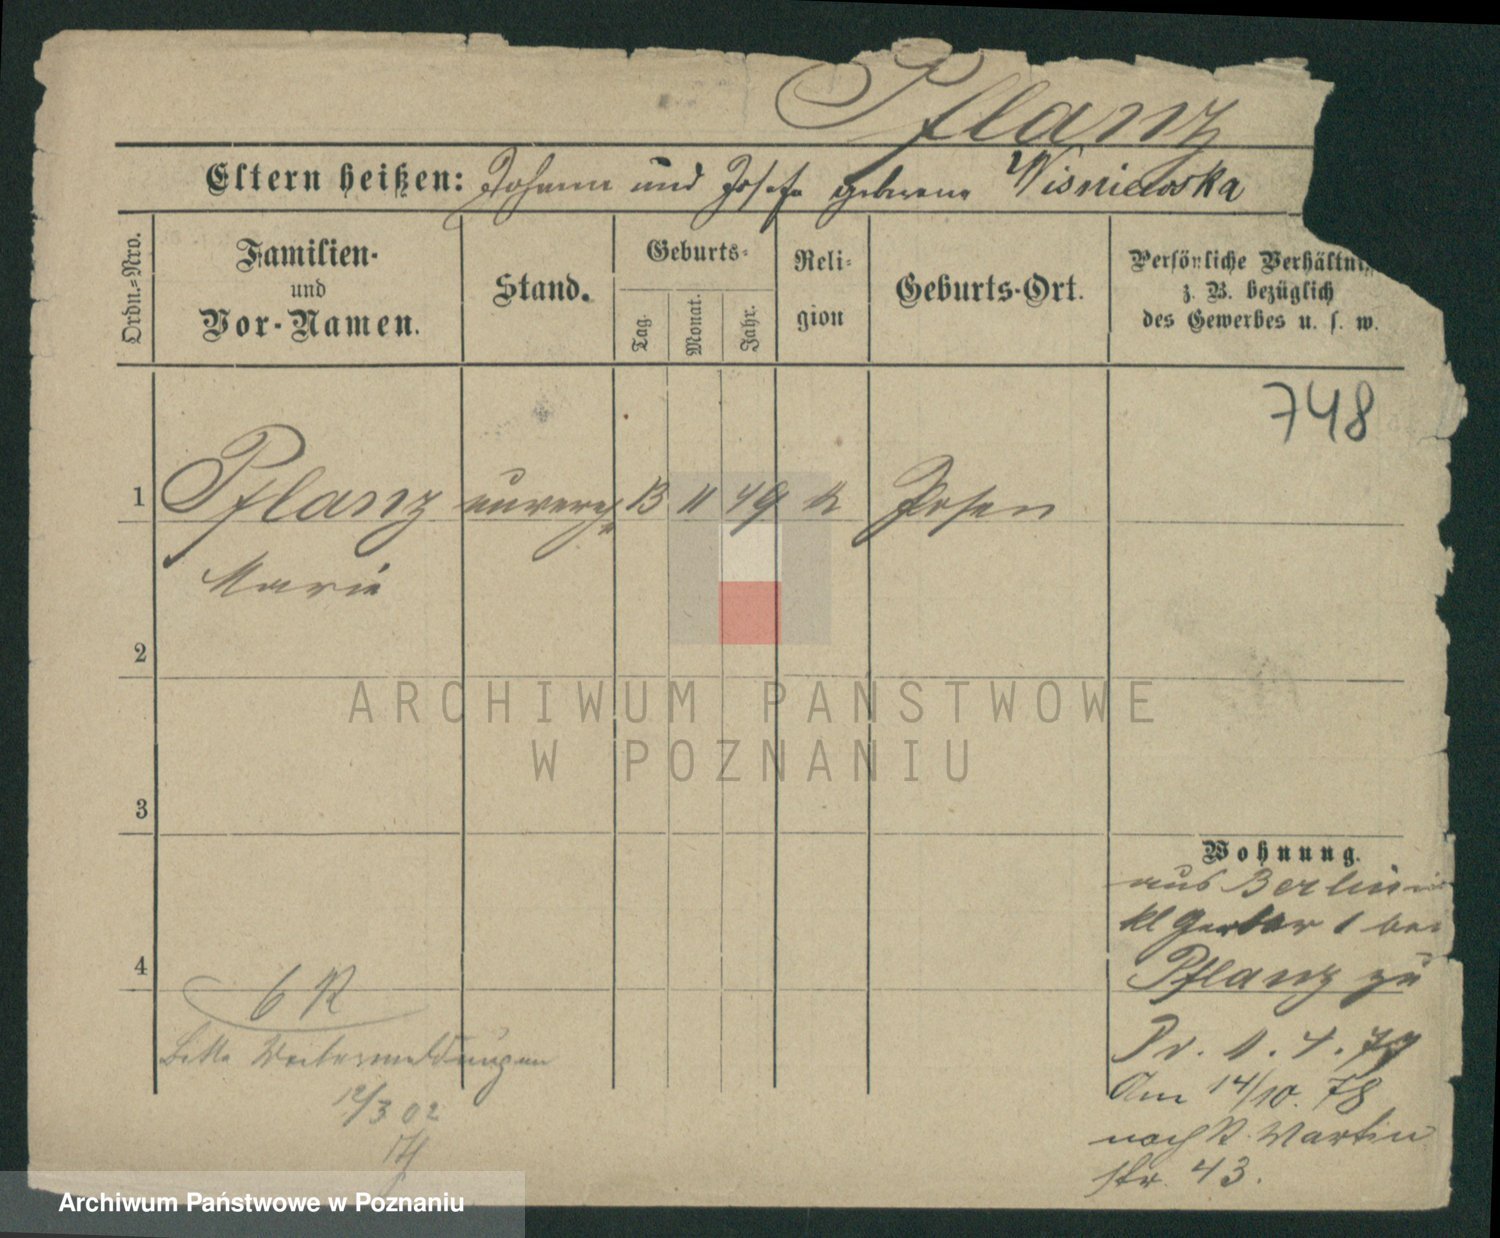 Pflanz
Eltern heißen: Johann und Josefa geborene Wisniewska
Ordn.=Nro.
Familien-
und
Vor-Namen.
Stand.
Geburts-
Tag.
Monat.
Jahr.
Reli-
gion
Geburts-Ort.
Persönliche Verhältni
z. B. bezüglich
des Gewerbes u. s. w.
748
1 Pflanz unvereh 13 11 49 k Posen
Marie
2
ARCHIWUM PAŃSTWOWE
W POZNANIU
3
Wohnung.
aus Berlin
kl Gerber 1 bei
4
Pflanz zu
6 R
Pr. 11. 4. 79
Bitte Weitermeldungen
Am 14/10. 78
12/3 02
nach St. Martin
str. 43.
Archiwum Państwowe w Poznaniu